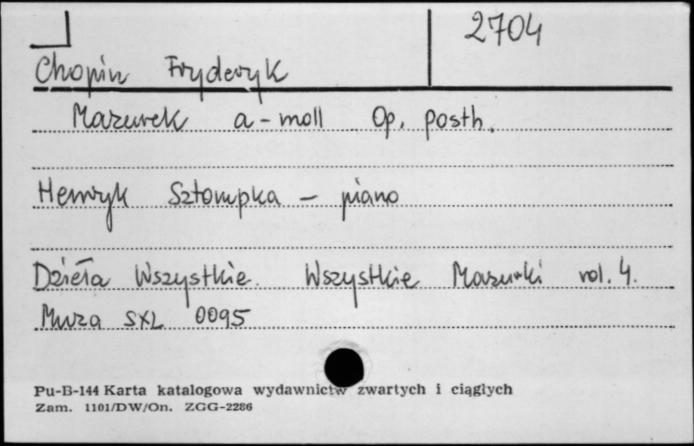 2704
Chopin Fryderyk
Mazurek a-moll Op. posth.
Henryk Sztompka – piano
Dzieła Wszystkie. Wszystkie Mazurki vol. 4.
Muza SXL 0095
Pu-B-144 Karta katalogowa wydawnictw zwartych i ciągłych
Zam. 1101/DW/On. ZGG-2286